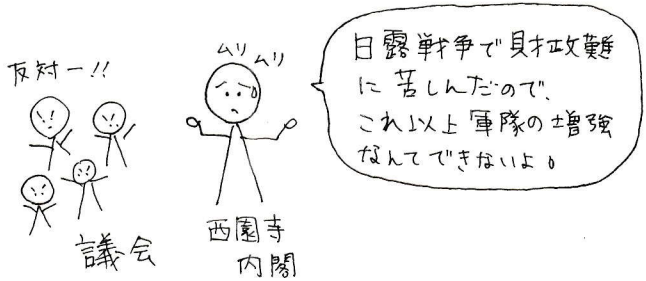 反対ー!!
議会
ムリ ムリ
西園寺
内閣
日露戦争で財政難
に苦しんだので、
これ以上軍隊の増強
なんてできないよ。